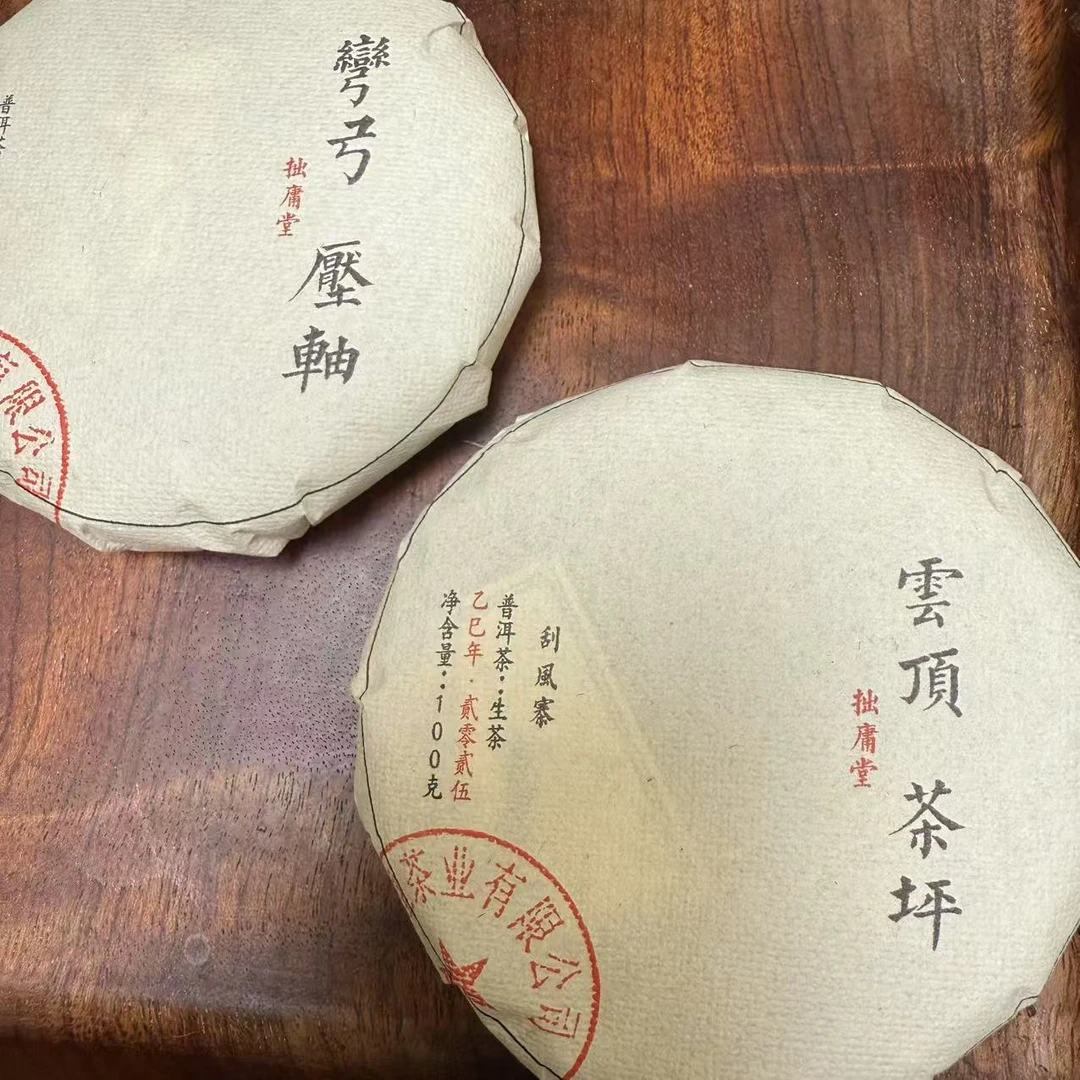 彎弓
壓軸
拙庸堂
普洱茶
有限公司
雲頂
茶坪
拙庸堂
刮風寨
普洱茶：生茶
乙巳年·貳零貳伍
净含量：100克
茶业有限公司